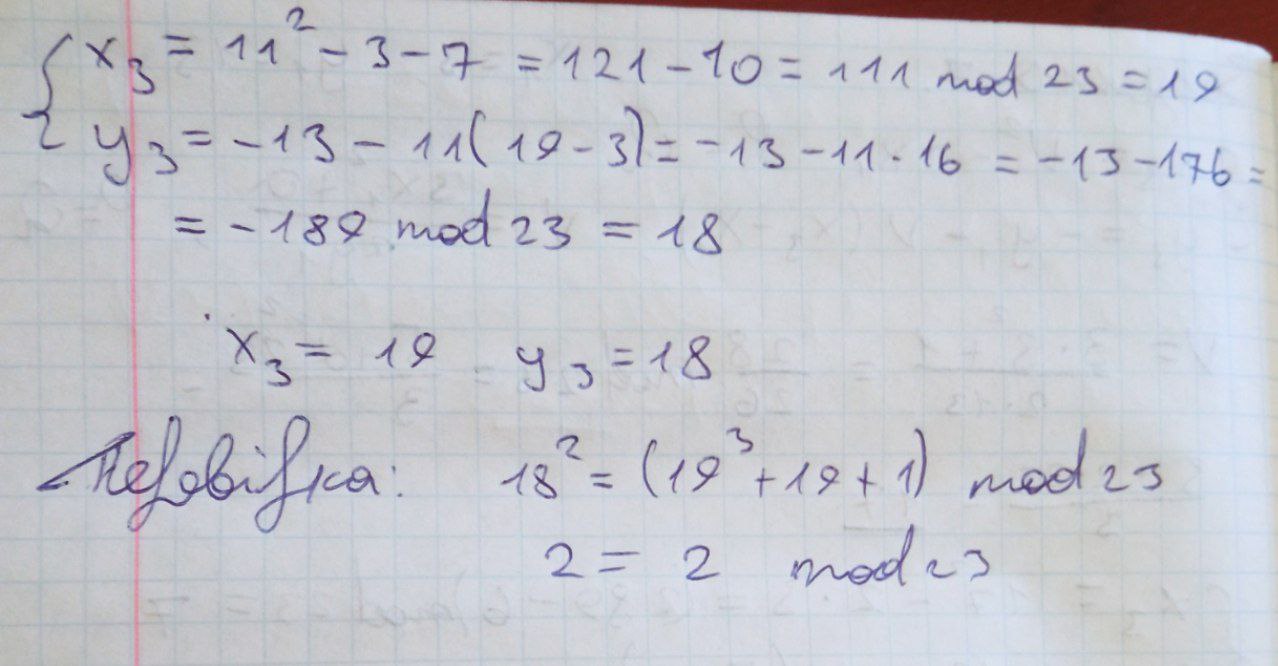 x₃ = 11² - 3 - 7 = 121 - 10 = 111 mod 23 = 19
y₃ = -13 - 11(19 - 3) = -13 - 11 · 16 = -13 - 176 =
= -189 mod 23 = 18
x₃ = 19 y₃ = 18
Перевірка: 18² = (19³ + 19 + 1) mod 23
2 = 2 mod 23